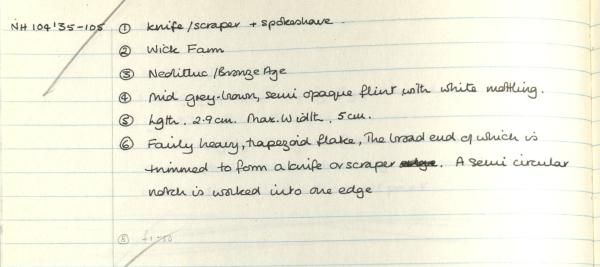 NH 104'35-105 ① Knife/scraper + spokeshave.
② Wick Farm
③ Neolithic/Bronze Age
④ Mid grey-brown, semi opaque flint with white mottling.
⑤ Lgth. 2.9cm. Max. Width. 5cm.
⑥ Fairly heavy, trapezoid flake, The broad end of which is
trimmed to form a knife or scraper edge. A semi circular
notch is worked into one edge
⑧